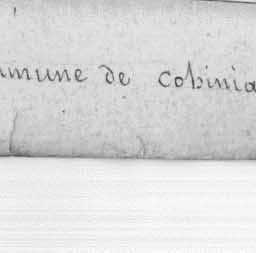 mmune de cohinia